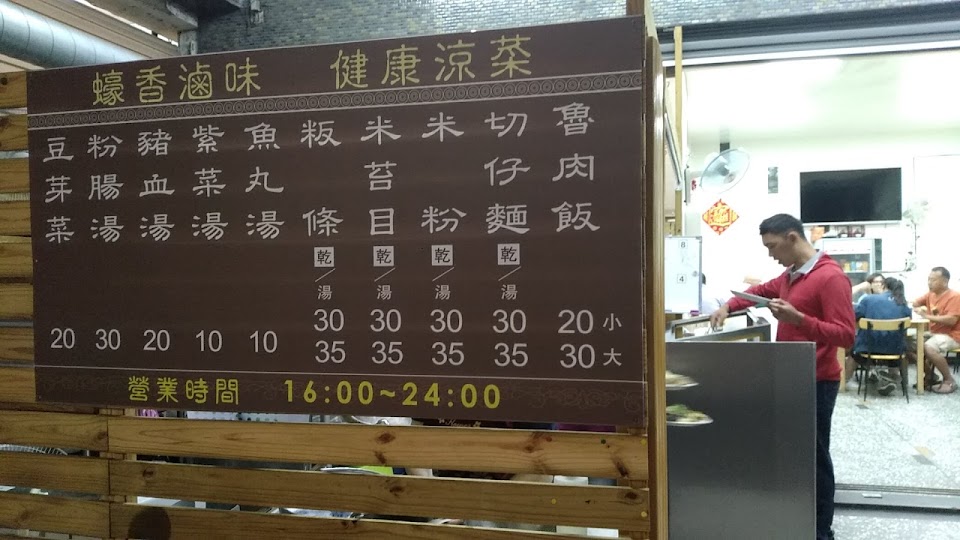 蠔香滷味 健康涼菜
魯肉飯 20小 30大
切仔麵 乾/湯 30 35
米粉 乾/湯 30 35
米苔目 乾/湯 30 35
粄條 乾/湯 30 35
魚丸湯 10
紫菜湯 10
豬血湯 20
粉腸湯 30
豆芽菜 20
營業時間 16:00~24:00
8
4